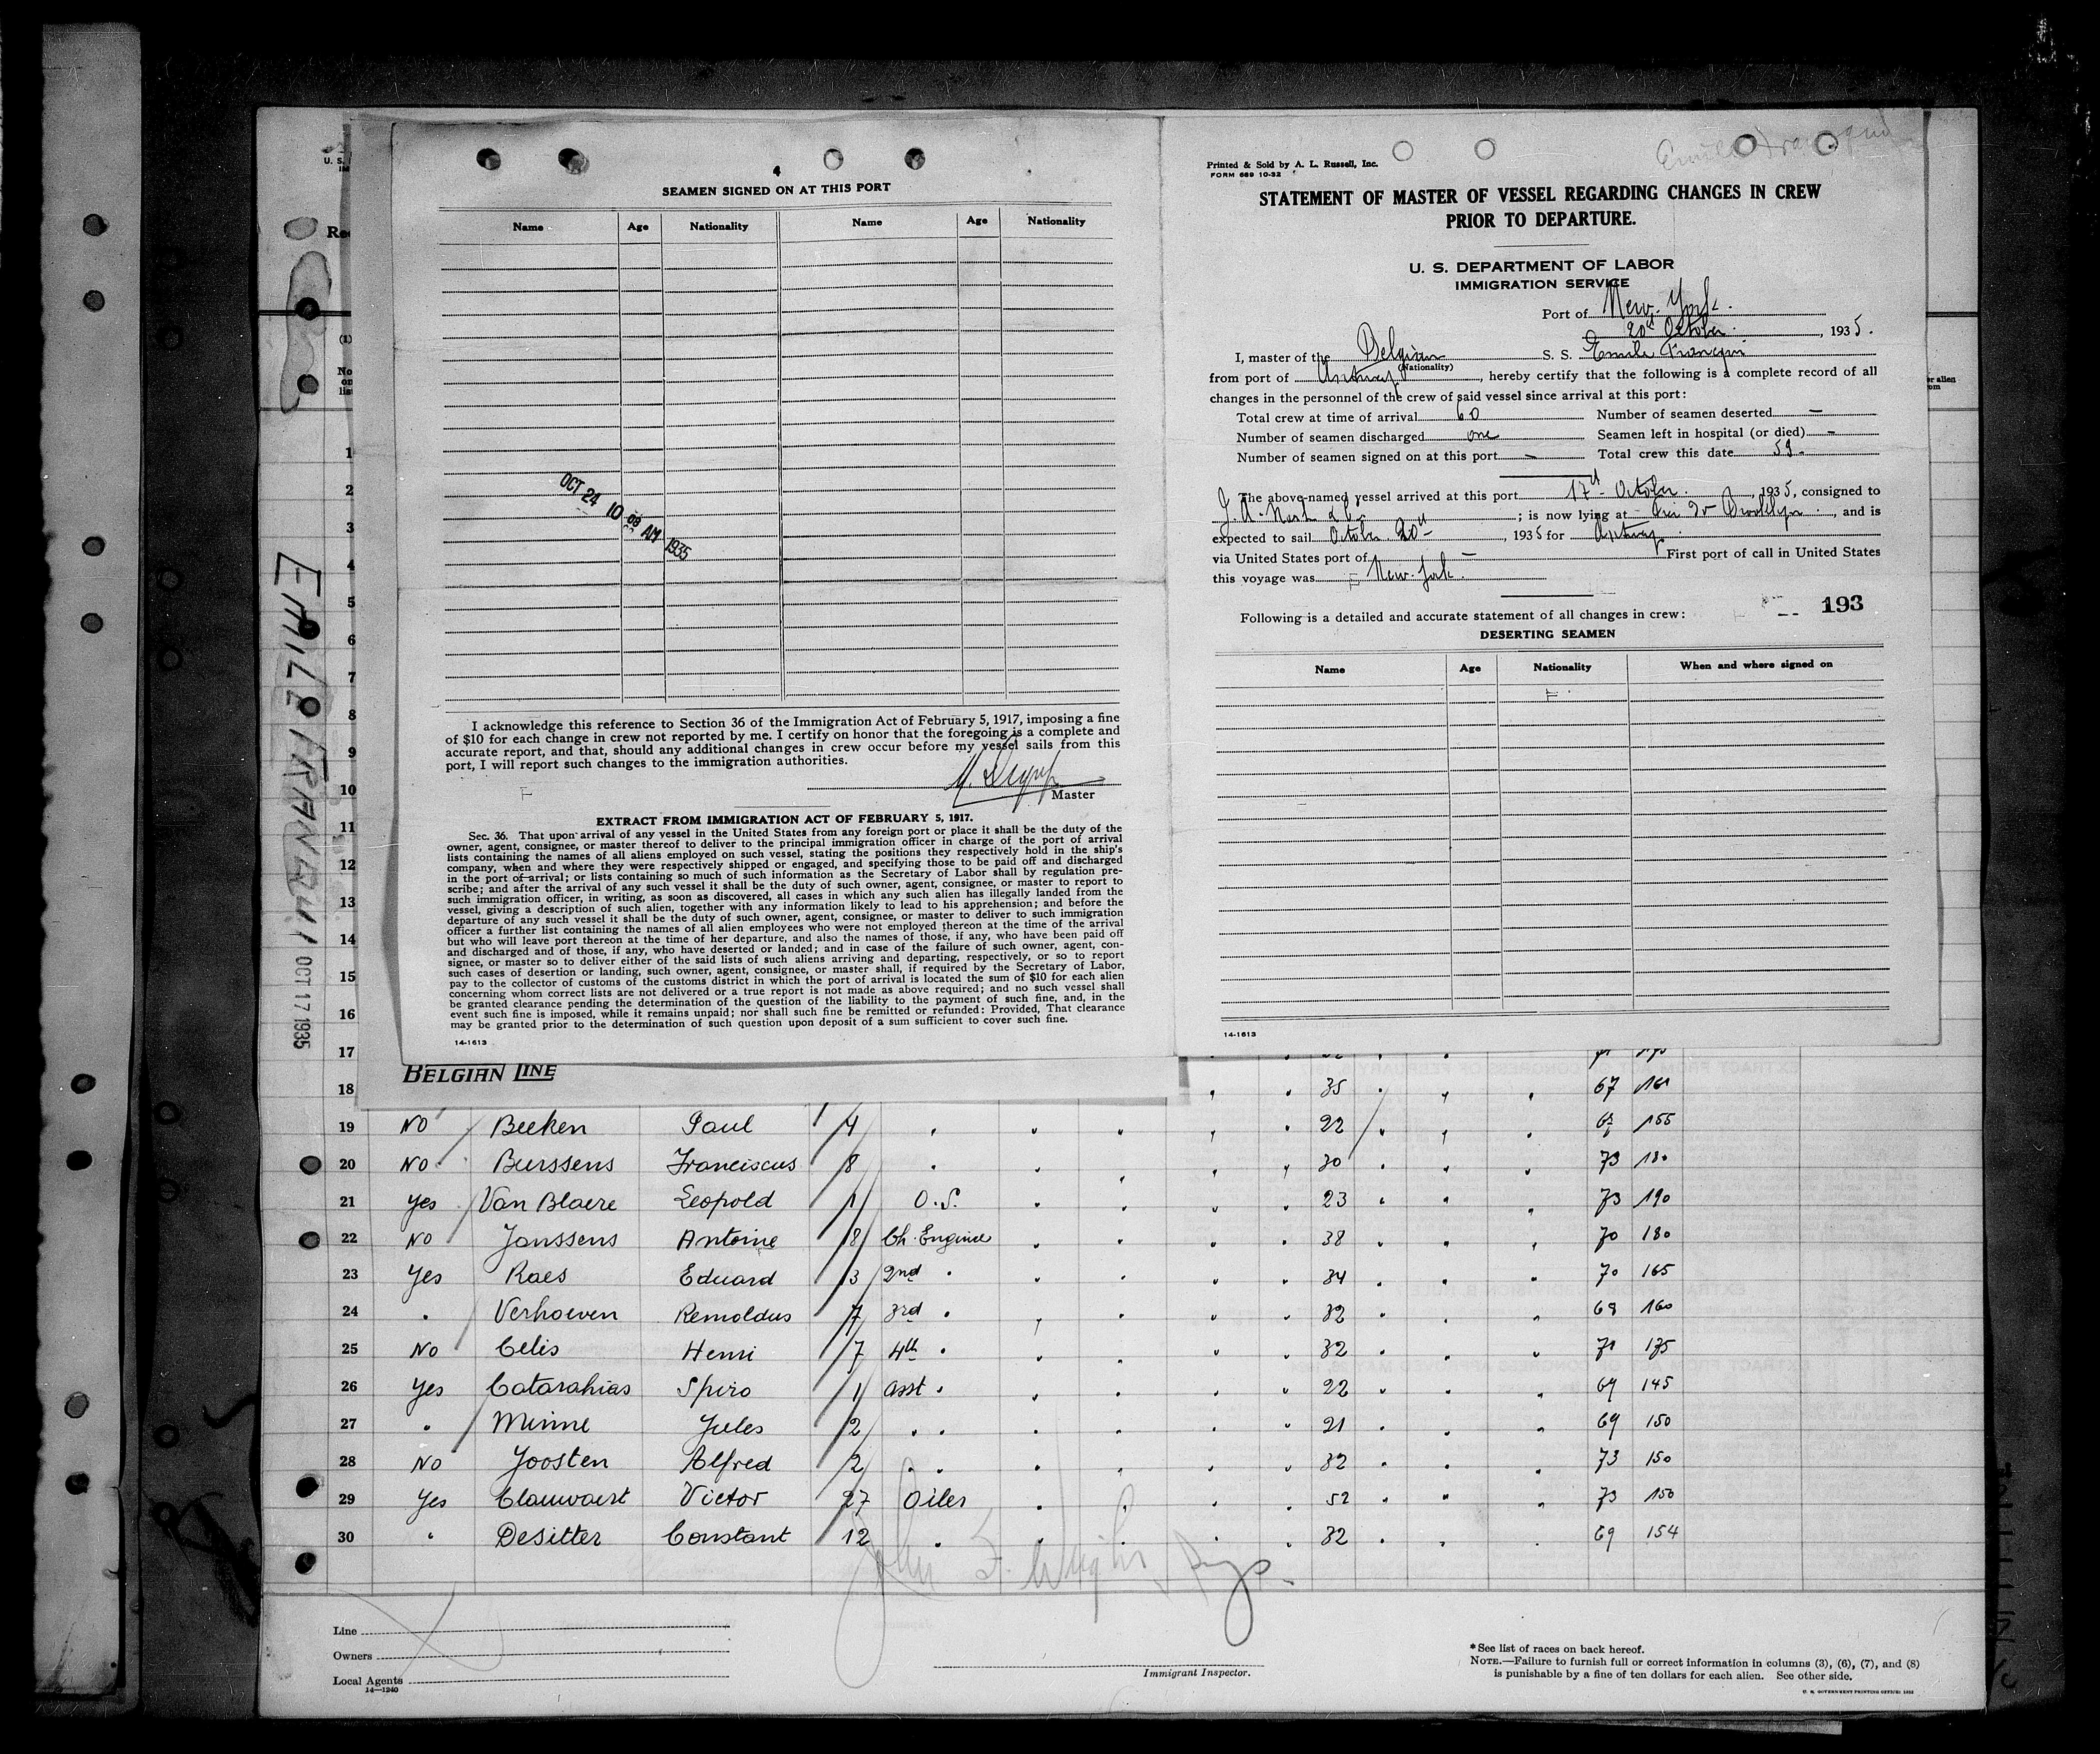 4
SEAMEN SIGNED ON AT THIS PORT
Name Age Nationality Name Age Nationality
OCT 24 10 08 AM 1935
I acknowledge this reference to Section 36 of the Immigration Act of February 5, 1917, imposing a fine
of $10 for each change in crew not reported by me. I certify on honor that the foregoing is a complete and
accurate report, and that, should any additional changes in crew occur before my vessel sails from this
port, I will report such changes to the immigration authorities.
Master
EXTRACT FROM IMMIGRATION ACT OF FEBRUARY 5, 1917.
Sec. 36. That upon arrival of any vessel in the United States from any foreign port or place it shall be the duty of the
owner, agent, consignee, or master thereof to deliver to the principal immigration officer in charge of the port of arrival
lists containing the names of all aliens employed on such vessel, stating the positions they respectively hold in the ship's
company, when and where they were respectively shipped or engaged, and specifying those to be paid off and discharged
in the port of arrival; or lists containing so much of such information as the Secretary of Labor shall by regulation pre-
scribe; and after the arrival of any such vessel it shall be the duty of such owner, agent, consignee, or master to report to
such immigration officer, in writing, as soon as discovered, all cases in which any such alien has illegally landed from the
vessel, giving a description of such alien, together with any information likely to lead to his apprehension; and before the
departure of any such vessel it shall be the duty of such owner, agent, consignee, or master to deliver to such immigration
officer a further list containing the names of all alien employees who were not employed thereon at the time of the arrival
but who will leave port thereon at the time of her departure, and also the names of those, if any, who have been paid off
and discharged and of those, if any, who have deserted or landed; and in case of the failure of such owner, agent, con-
signee, or master so to deliver either of the said lists of such aliens arriving and departing, respectively, or so to report
such cases of desertion or landing, such owner, agent, consignee, or master shall, if required by the Secretary of Labor,
pay to the collector of customs of the customs district in which the port of arrival is located the sum of $10 for each alien
concerning whom correct lists are not delivered or a true report is not made as above required; and no such vessel shall
be granted clearance pending the determination of the question of the liability to the payment of such fine, and, in the
event such fine is imposed, while it remains unpaid; nor shall such fine be remitted or refunded: Provided, That clearance
may be granted prior to the determination of such question upon deposit of a sum sufficient to cover such fine.
14-1613
Printed & Sold by A. L. Russell, Inc.
FORM 689 10-32
Emile Francqui
STATEMENT OF MASTER OF VESSEL REGARDING CHANGES IN CREW
PRIOR TO DEPARTURE.
U. S. DEPARTMENT OF LABOR
IMMIGRATION SERVICE
Port of New-York.
20th October, 1935.
I, master of the Belgian S. S. Emile Francqui
(Nationality)
from port of Antwerp, hereby certify that the following is a complete record of all
changes in the personnel of the crew of said vessel since arrival at this port:
Total crew at time of arrival 60 Number of seamen deserted —
Number of seamen discharged one Seamen left in hospital (or died) —
Number of seamen signed on at this port — Total crew this date 59-
The above-named vessel arrived at this port 17th October, 1935, consigned to
; is now lying at Brooklyn, and is
expected to sail October 20th, 1935 for Antwerp
via United States port of — First port of call in United States
this voyage was New-York.
193
Following is a detailed and accurate statement of all changes in crew:
DESERTING SEAMEN
Name Age Nationality When and where signed on
14-1613
EMILE FRANCQUI OCT 17 1935
U. S.
1
2
3
4
5
6
7
8
9
10
11
12
13
14
15
16
17
BELGIAN LINE
18 35 67 161
19 No Beeken Paul 4 22 155
20 No Burssens Franciscus 8 30 73 180
21 Yes Van Blaere Leopold 1 O.S. 23 73 190
22 No Janssens Antoine 8 Ch. Engineer 38 70 180
23 Yes Raes Eduard 3 2nd " 34 70 165
24 " Verhoeven Remoldus 7 3rd " 32 68 160
25 No Celis Henri 7 4th " 32 71 175
26 Yes Catarahias Spiro 1 asst " 22 69 145
27 " Minne Jules 2 " " 21 69 150
28 No Joosten Alfred 2 " " 32 73 150
29 Yes Clauwaert Victor 27 Oiler 52 73 150
30 " DeSitter Constant 12 " 32 69 154
Line
Owners
Local Agents
14—1240
Immigrant Inspector.
*See list of races on back hereof.
NOTE.—Failure to furnish full or correct information in columns (3), (6), (7), and (8)
is punishable by a fine of ten dollars for each alien. See other side.
U. S. GOVERNMENT PRINTING OFFICE: 1932